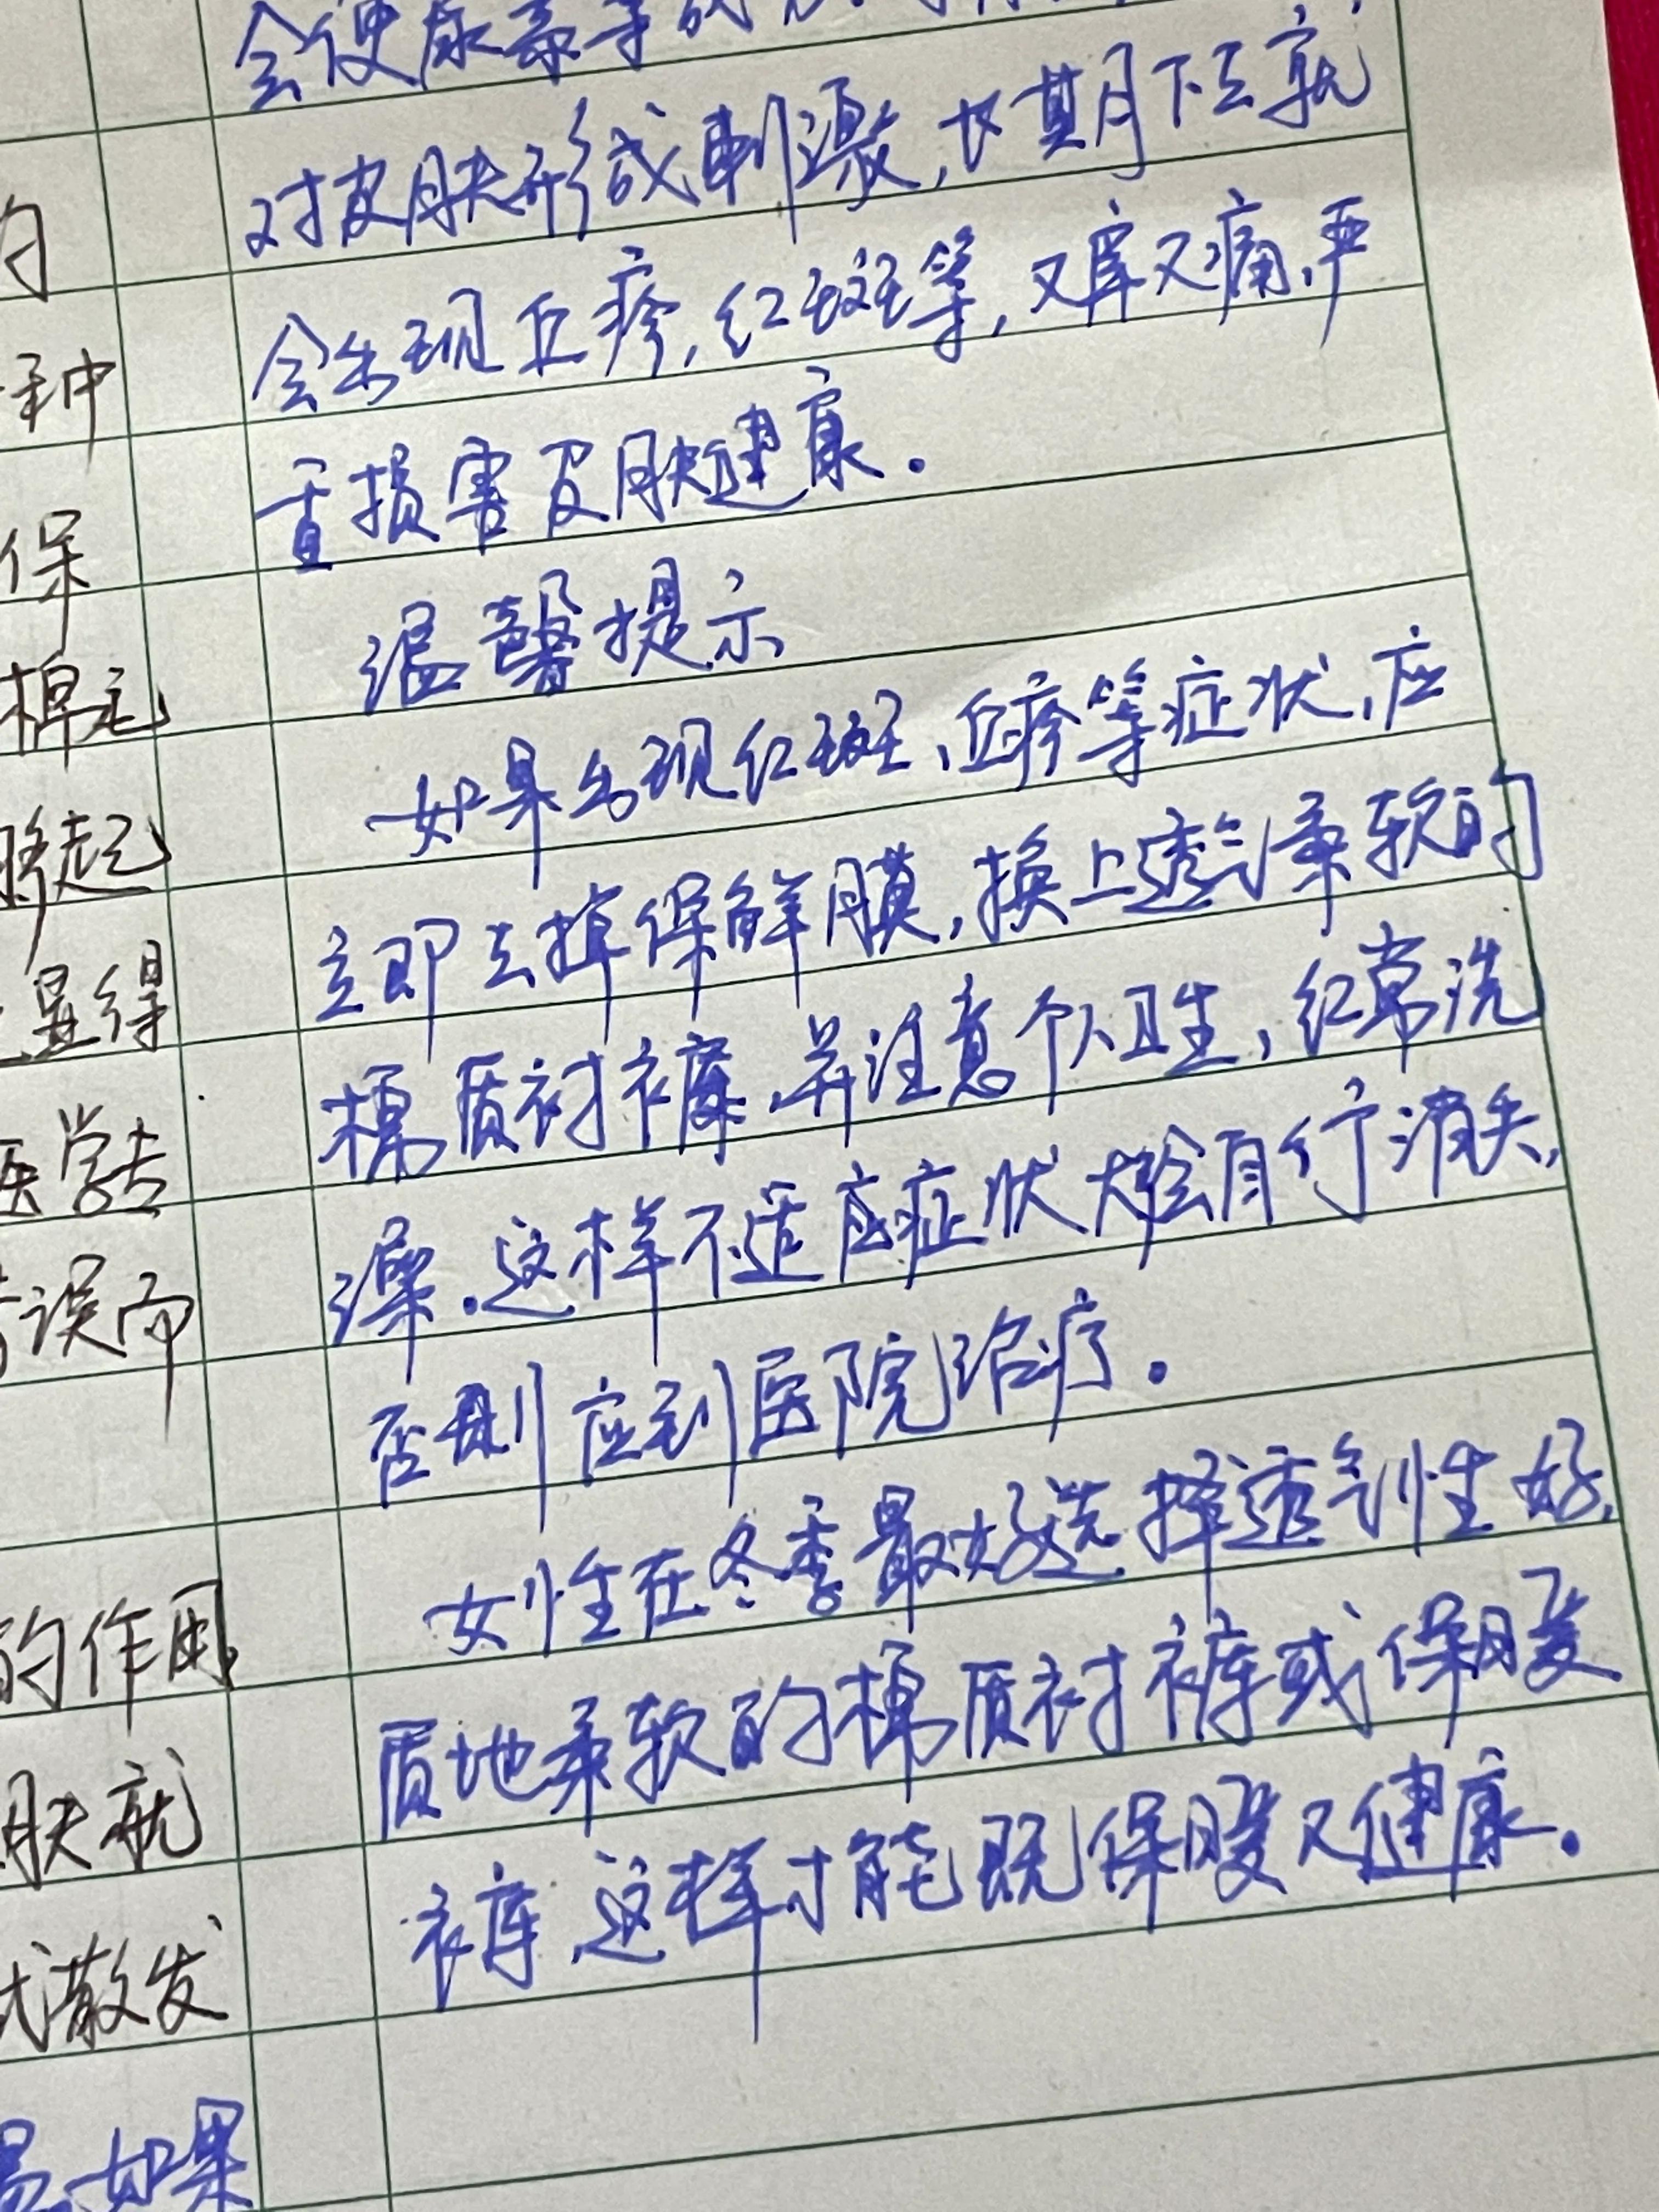 的
种
保
棉毛
将起
显得
医学去
错误而
的作用
肤就
式散发
易,如果
会使尿素等
对皮肤形成刺激,长期下去就
会出现丘疹,红斑等,又痒又痛,严
重损害皮肤健康。
温馨提示
如果出现红斑、丘疹等症状,应
立即去掉保鲜膜,换上透气柔软的
棉质衬裤,并注意个人卫生,经常洗
澡.这样不适应症状大会自行消失,
否则应到医院治疗。
女性在冬季最好选择透气性好,
质地柔软的棉质衬裤或保暖
裤,这样才能既保暖又健康。